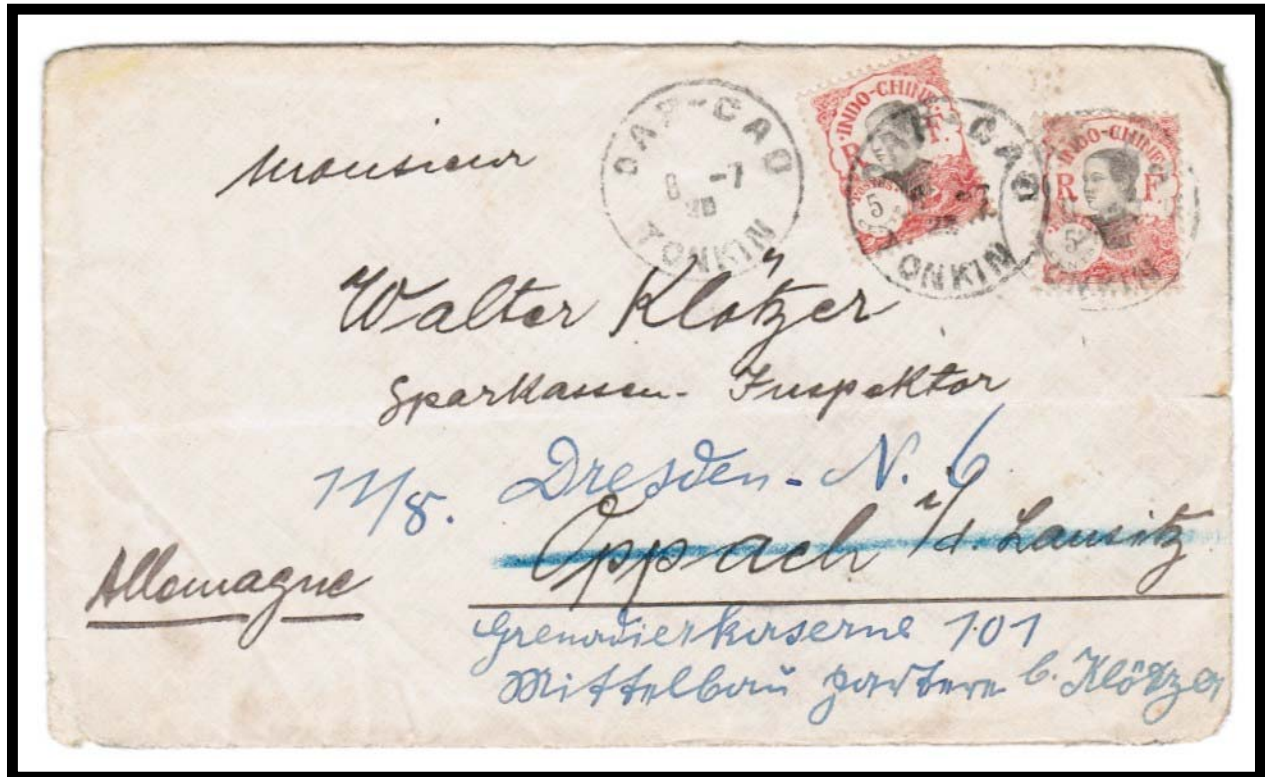 DAP-CAO
6 -7
20
TONKIN
INDO-CHINE
R F.
POSTES
5
DAP-CAO
-7
TONKIN
INDO-CHINE
R F.
5
TONKIN
Monsieur
Walter Klötzer
Sparkassen-Inspektor
11/8. Dresden-N. 6
Oppach i/d. Lausitz
Allemagne
Grenadierkaserne 101
Mittelbau partere b. Klötzer